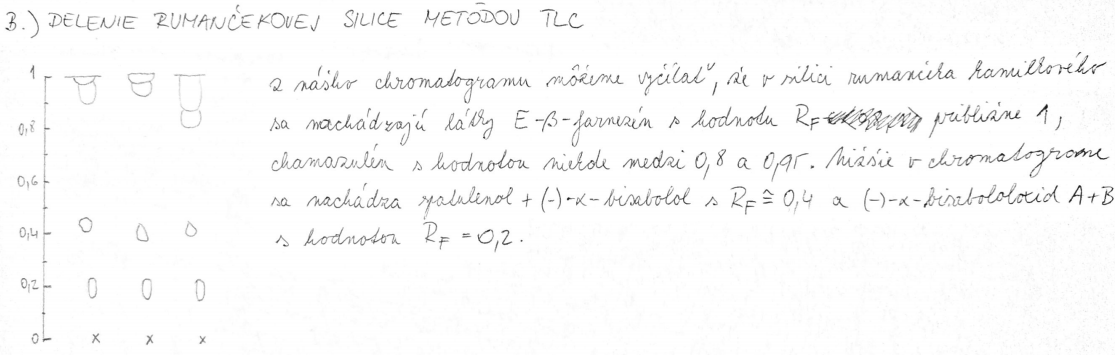 B.) DELENIE RUMANČEKOVEJ SILICE METÓDOU TLC
1
0,8
0,6
0,4
0,2
0
x x x
z nášho chromatogramu môžeme vyčítať, že v silici rumančeka kamilkového
sa nachádzajú látky E-β-farnezén s hodnotu RF približne 1,
chamazulén s hodnotou niekde medzi 0,8 a 0,95. Nižšie v chromatograme
sa nachádza spatulenol + (-)-α-bisabolol s RF ≅ 0,4 a (-)-α-bisabololoxid A+B
s hodnotou RF = 0,2.